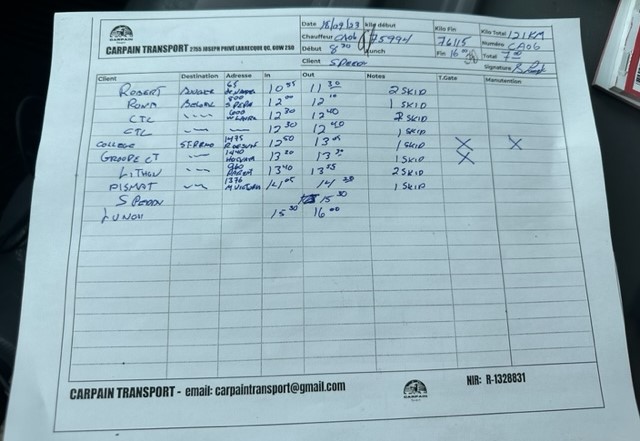 Date 18/09/23 Kilo début Kilo Fin Kilo Total 121KM
CARPAIN TRANSPORT 2755 JOSEPH PRIVÉ LABRECQUE QC, G0W 2S0 Chauffeur CA06 75994 76115 Numéro CA06
Début 8 30 Lunch Fin 16 00 Total 7 00
Client SPEEDO Signature
Client Destination Adresse In Out Notes T.Gate Manutention
ROBERT 65 10 55 11 30 2 SKID
RONA 500 12 00 12 10 1 SKID
CTC 600 12 30 12 40 2 SKID
CTC 12 30 12 40 1 SKID
COLLEGE ST-BRUNO 1475 12 50 13 05 1 SKID X X
GROUPE CT 1440 13 20 13 30 1 SKID X
960 13 40 13 55 2 SKID
1376 14 05 14 30 1 SKID
15 30
LUNCH 15 30 16 00
CARPAIN TRANSPORT - email: carpaintransport@gmail.com NIR: R-1328831